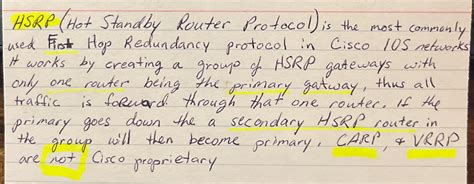 HSRP (Hot Standby Router Protocol) is the most commonly
used First Hop Redundancy protocol in Cisco IOS networks
It works by creating a group of HSRP gateways with
only one router being the primary gatway, thus all
traffic is foreword through that one router. If the
primary goes down the a secondary HSRP router in
the group will then become primary. CARP, & VRRP
are not Cisco proprietary